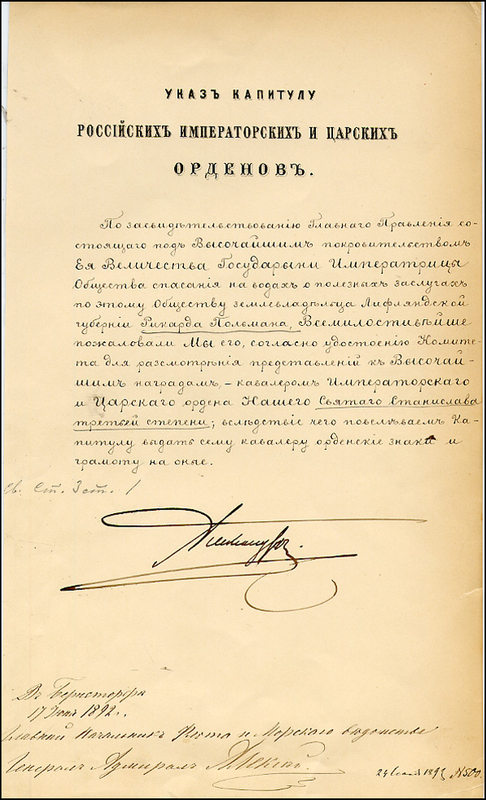 УКАЗЪ КАПИТУЛУ
РОССІЙСКИХЪ ИМПЕРАТОРСКИХЪ И ЦАРСКИХЪ
ОРДЕНОВЪ.
По засвидѣтельствованію Главнаго Правленія со-
стоящаго подъ Высочайшимъ покровительствомъ
Ея Величества Государыни Императрицы
Общества спасанія на водахъ о полезныхъ заслугахъ
по этому Обществу землевладѣльца Лифляндской
губерніи Рихарда Польмана, Всемилостивѣйше
пожаловали Мы его, согласно удостоенію Комите-
та для разсмотрѣнія представленій къ Высочай-
шимъ наградамъ, – кавалеромъ Императорскаго
и Царскаго ордена Нашего Святаго Станислава
третьей степени; вслѣдствіе чего повелѣваемъ Ка-
питулу выдать сему кавалеру орденскіе знаки и
грамоту на оные.
Св. Ст. 3 ст. /
Александръ.
Въ Бернсторфѣ
17 Іюня 1892 г.
Главный Начальникъ Флота и Морскаго вѣдомства
Генералъ Адмиралъ Алексѣй.
24 1892 N500.